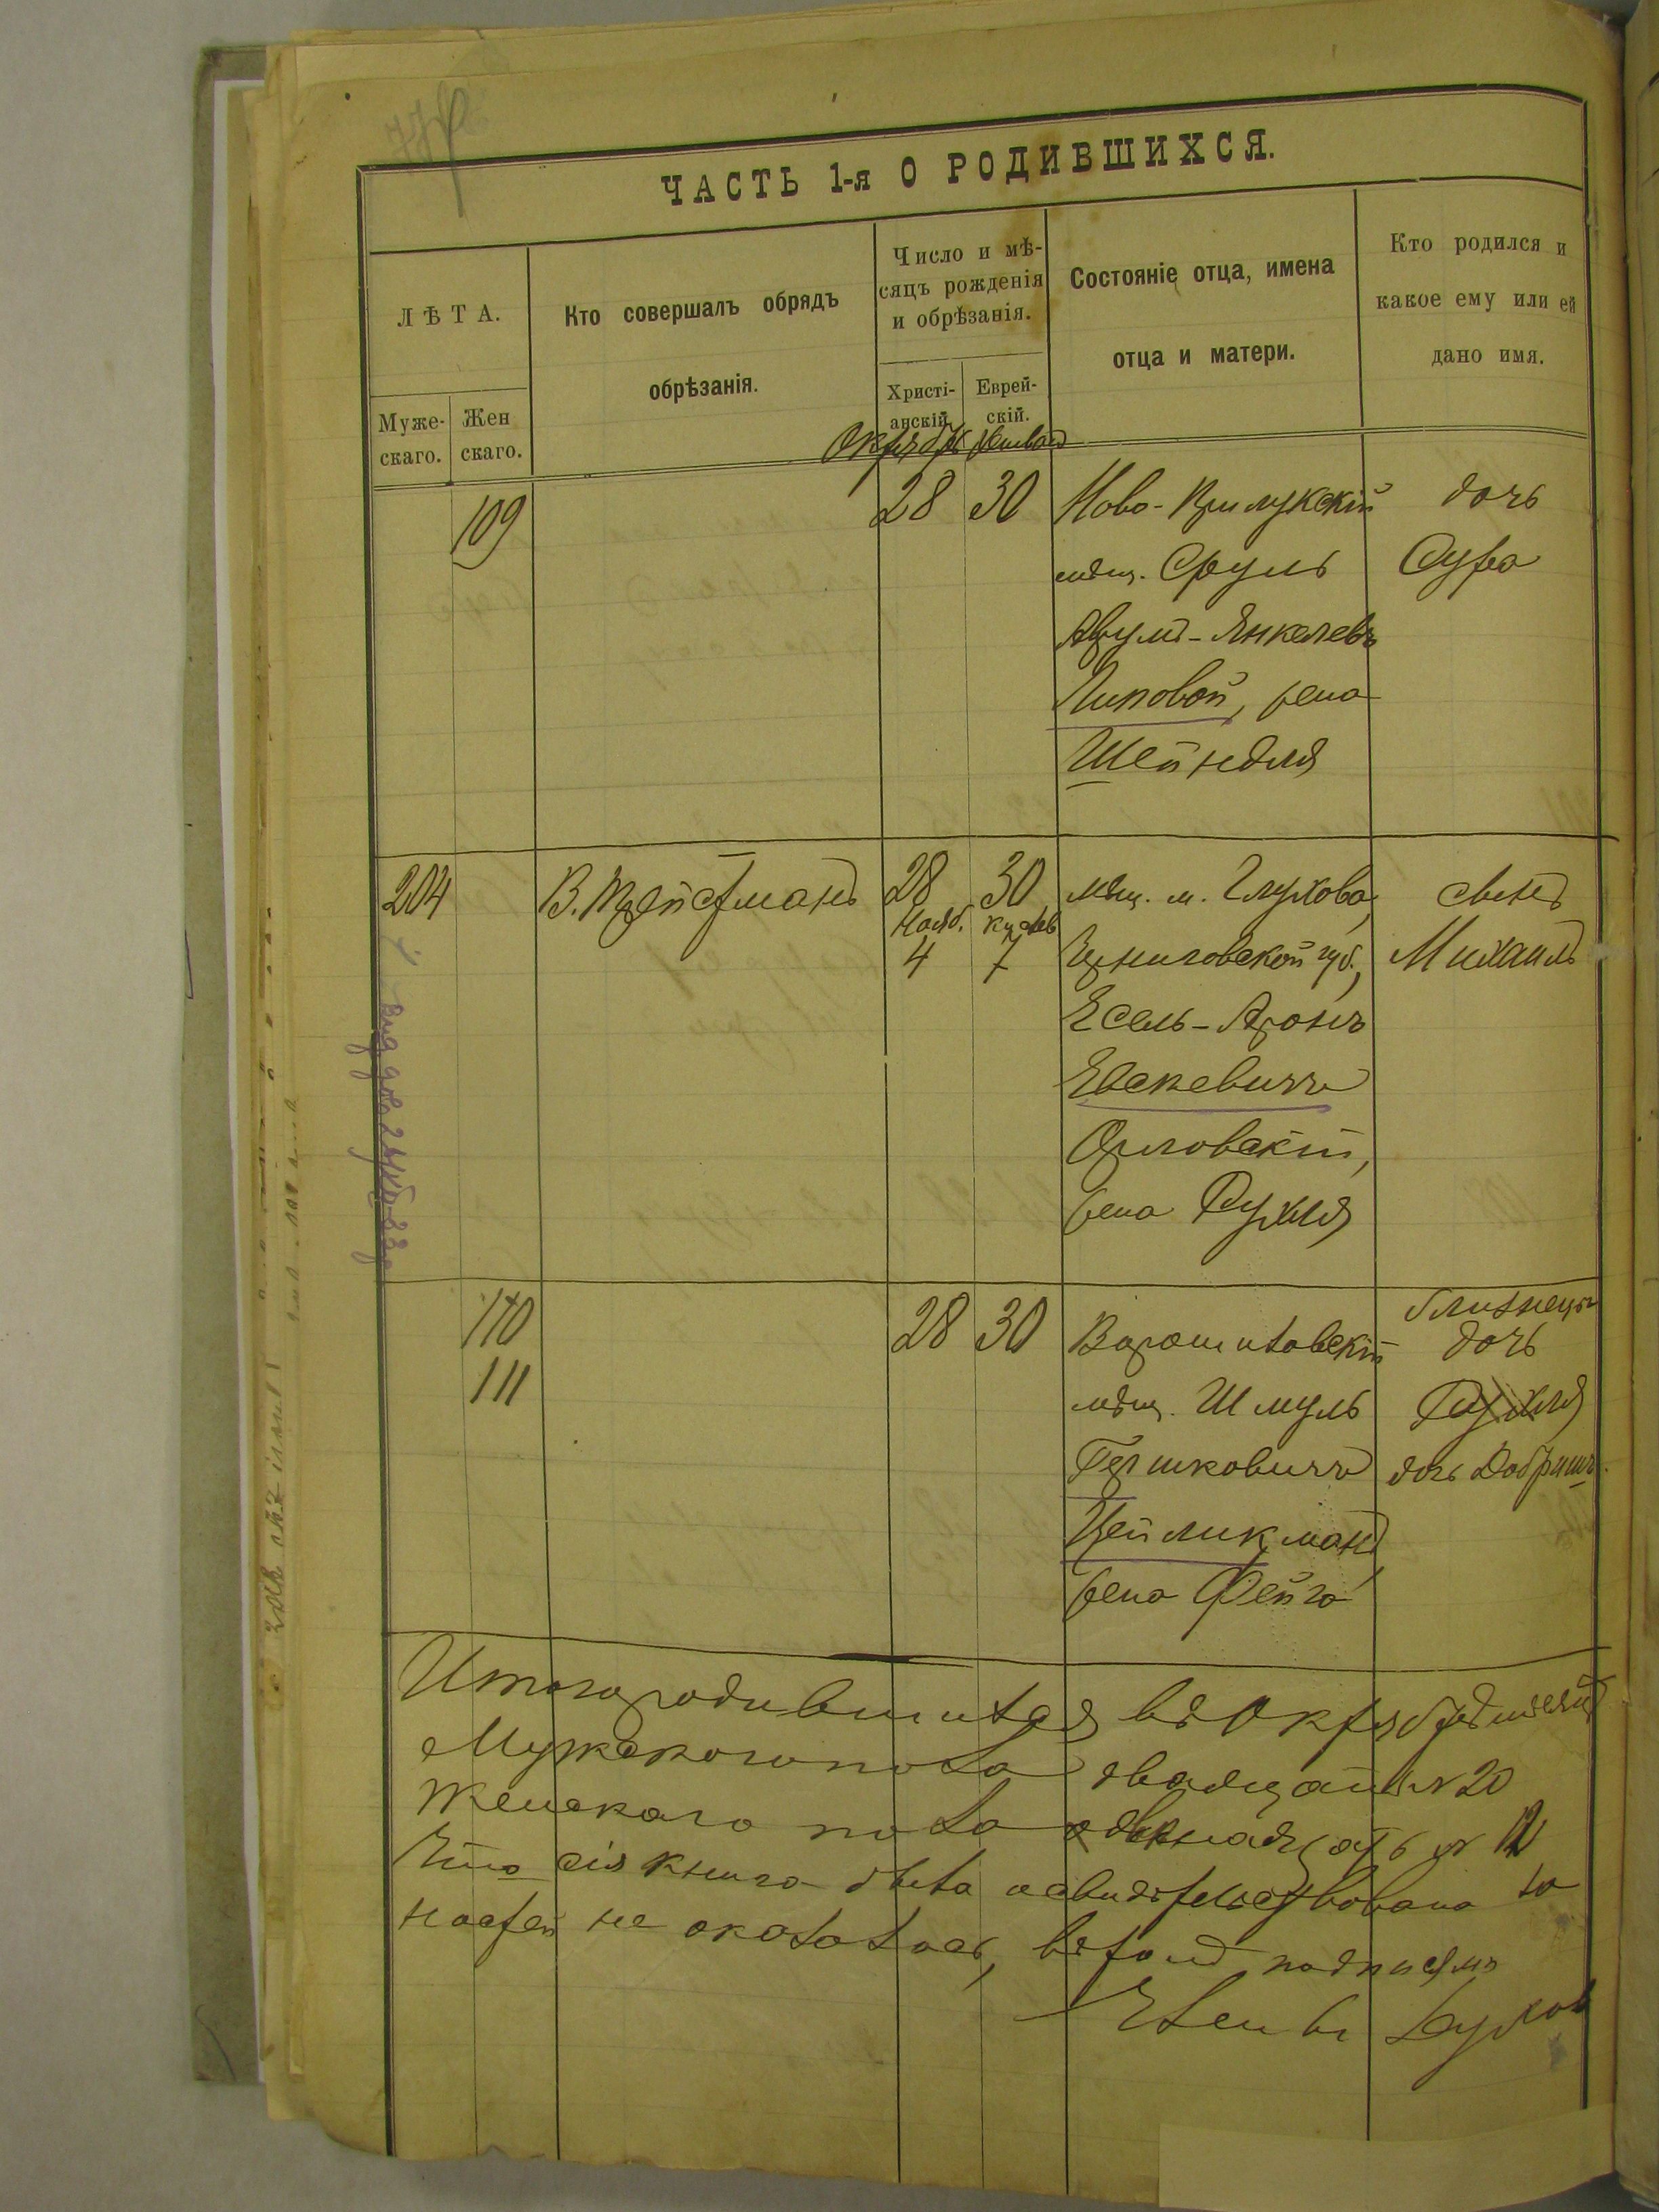 ЧАСТЬ 1-я О РОДИВШИХСЯ.
ЛѢТА.
Муже-
скаго.
Жен
скаго.
Кто совершалъ обрядъ
обрѣзанія.
Число и мѣ-
сяцъ рожденія
и обрѣзанія.
Христі-
анскій.
Еврей-
скій.
Состояніе отца, имена
отца и матери.
Кто родился и
какое ему или ей
дано имя.
Октябрь Хешванъ
109
28 30
Ново-Прилукскій
мѣщ. Сруль
Аврумъ-Янкелевъ
Липовой, жена
Шейндля
дочь
Сура
204
В. Трейстманъ
28 30
Нояб. Кислев
4 7
мѣщ. м. Глухова,
Черниговской губ.,
Есель-Аронъ
Евсеевичъ
Орловскій,
жена Рухля
сынъ
Михаилъ
110
111
28 30
Ворошиловскій
мѣщ. Шмуль
Гершковичъ
Цейликманъ,
жена Фейга
близнецы
дочь
Рухля
дочь Добришъ
Итого родившихся въ Октябрѣ мѣсяцѣ
Мужскаго пола двадцать № 20
Женскаго пола двѣнадцать № 12
Что сія книга была освидѣтельствована
не оказалось, въ томъ подписомъ